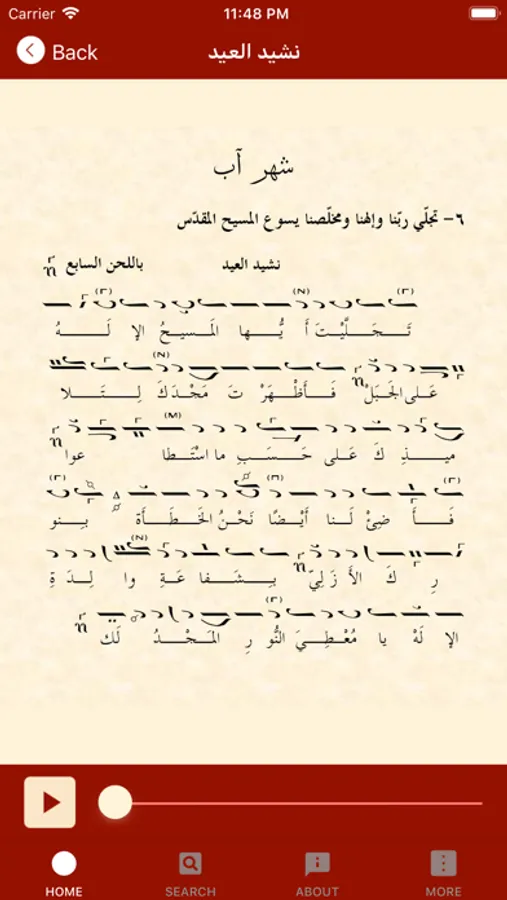 Carrier 11:48 PM
Back نشيد العيد
شهر آب
٦- تجلّي ربّنا وإلهنا ومخلّصنا يسوع المسيح المقدّس
نشيد العيد باللحن السابع
تَجَلَّيْتَ أَيُّها المَسيحُ الإِلَهُ
عَلى الجَبَلْ فَأَظْهَرْتَ مَجْدَكَ لِتَلا
ميذِكَ عَلى حَسَبِ ما اسْتَطاعوا
فَأَضِئْ لَنا أَيْضًا نَحْنُ الخَطَأَة بِنو
رِكَ الأَزَلِيّ بِشَفاعَةِ والِدَةِ
الإِلَهْ يا مُعْطِيَ النُّورِ المَجْدُ لَكَ
HOME SEARCH ABOUT MORE